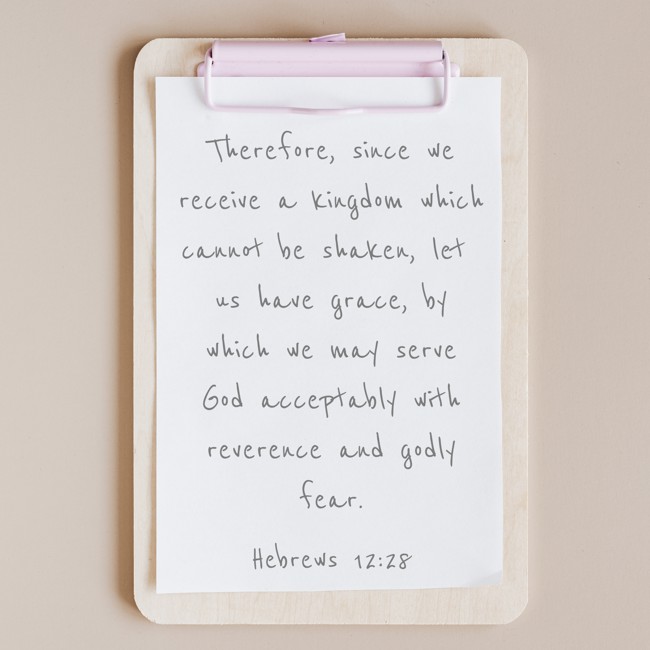 Therefore, since we
receive a kingdom which
cannot be shaken, let
us have grace, by
which we may serve
God acceptably with
reverence and godly
fear.
Hebrews 12:28